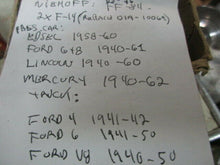 NIEHOFF: FF-394
2X F-14 (REBACH 019-10065)
PASS CAR:
EDSEL 1958-60
FORD 6+8 1940-61
LINCOLN 1940-60
MERCURY 1940-62
TRUCK:
FORD 4 1941-42
FORD 6 1941-50
FORD V8 1940-50